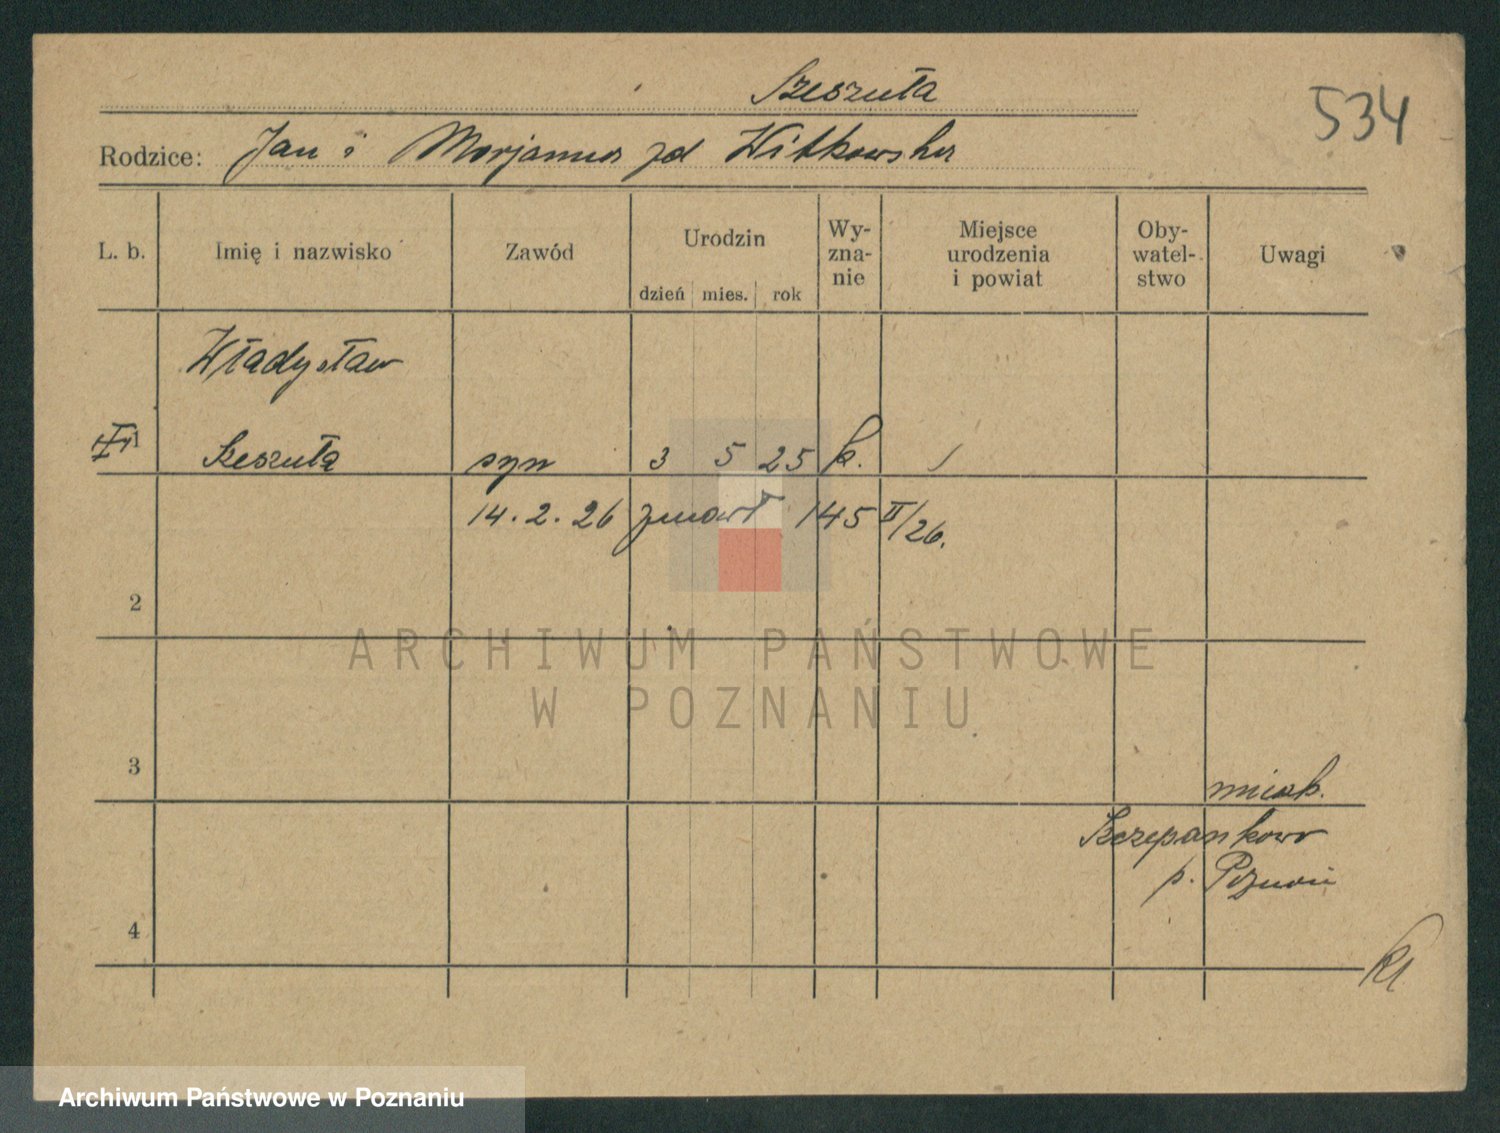 Szeszuła
534
Rodzice: Jan i Marjanna zd Witkowska
L. b. Imię i nazwisko Zawód Urodzin dzień mies. rok Wyznanie Miejsce urodzenia i powiat Obywatelstwo Uwagi
Władysław
1 Szeszuła syn 3 5 25 k. /
14. 2. 26 zmarł 145 II/26.
2
3
miesk.
Szczepankowo
p. Poznań
4
ARCHIWUM PAŃSTWOWE
W POZNANIU
Archiwum Państwowe w Poznaniu